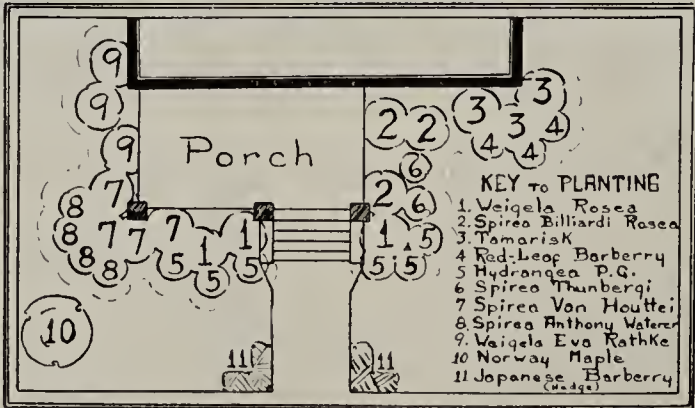 9
9
9
Porch
2 2
3
3 3
4 4 4
6
2
6
7
8
8 7
8 7 7
8
8
5
1 1
5 5
1
5
5 5
10
11
11
KEY TO PLANTING
1. Weigela Rosea
2. Spirea Billiardi Rosea
3. Tamarisk
4 Red-Leaf Barberry
5 Hydrangea P.G.
6 Spirea Thunbergi
7 Spirea Van Houttei
8. Spirea Anthony Waterer
9. Weigela Eva Rathke
10 Norway Maple
11 Japanese Barberry
(Hedge)